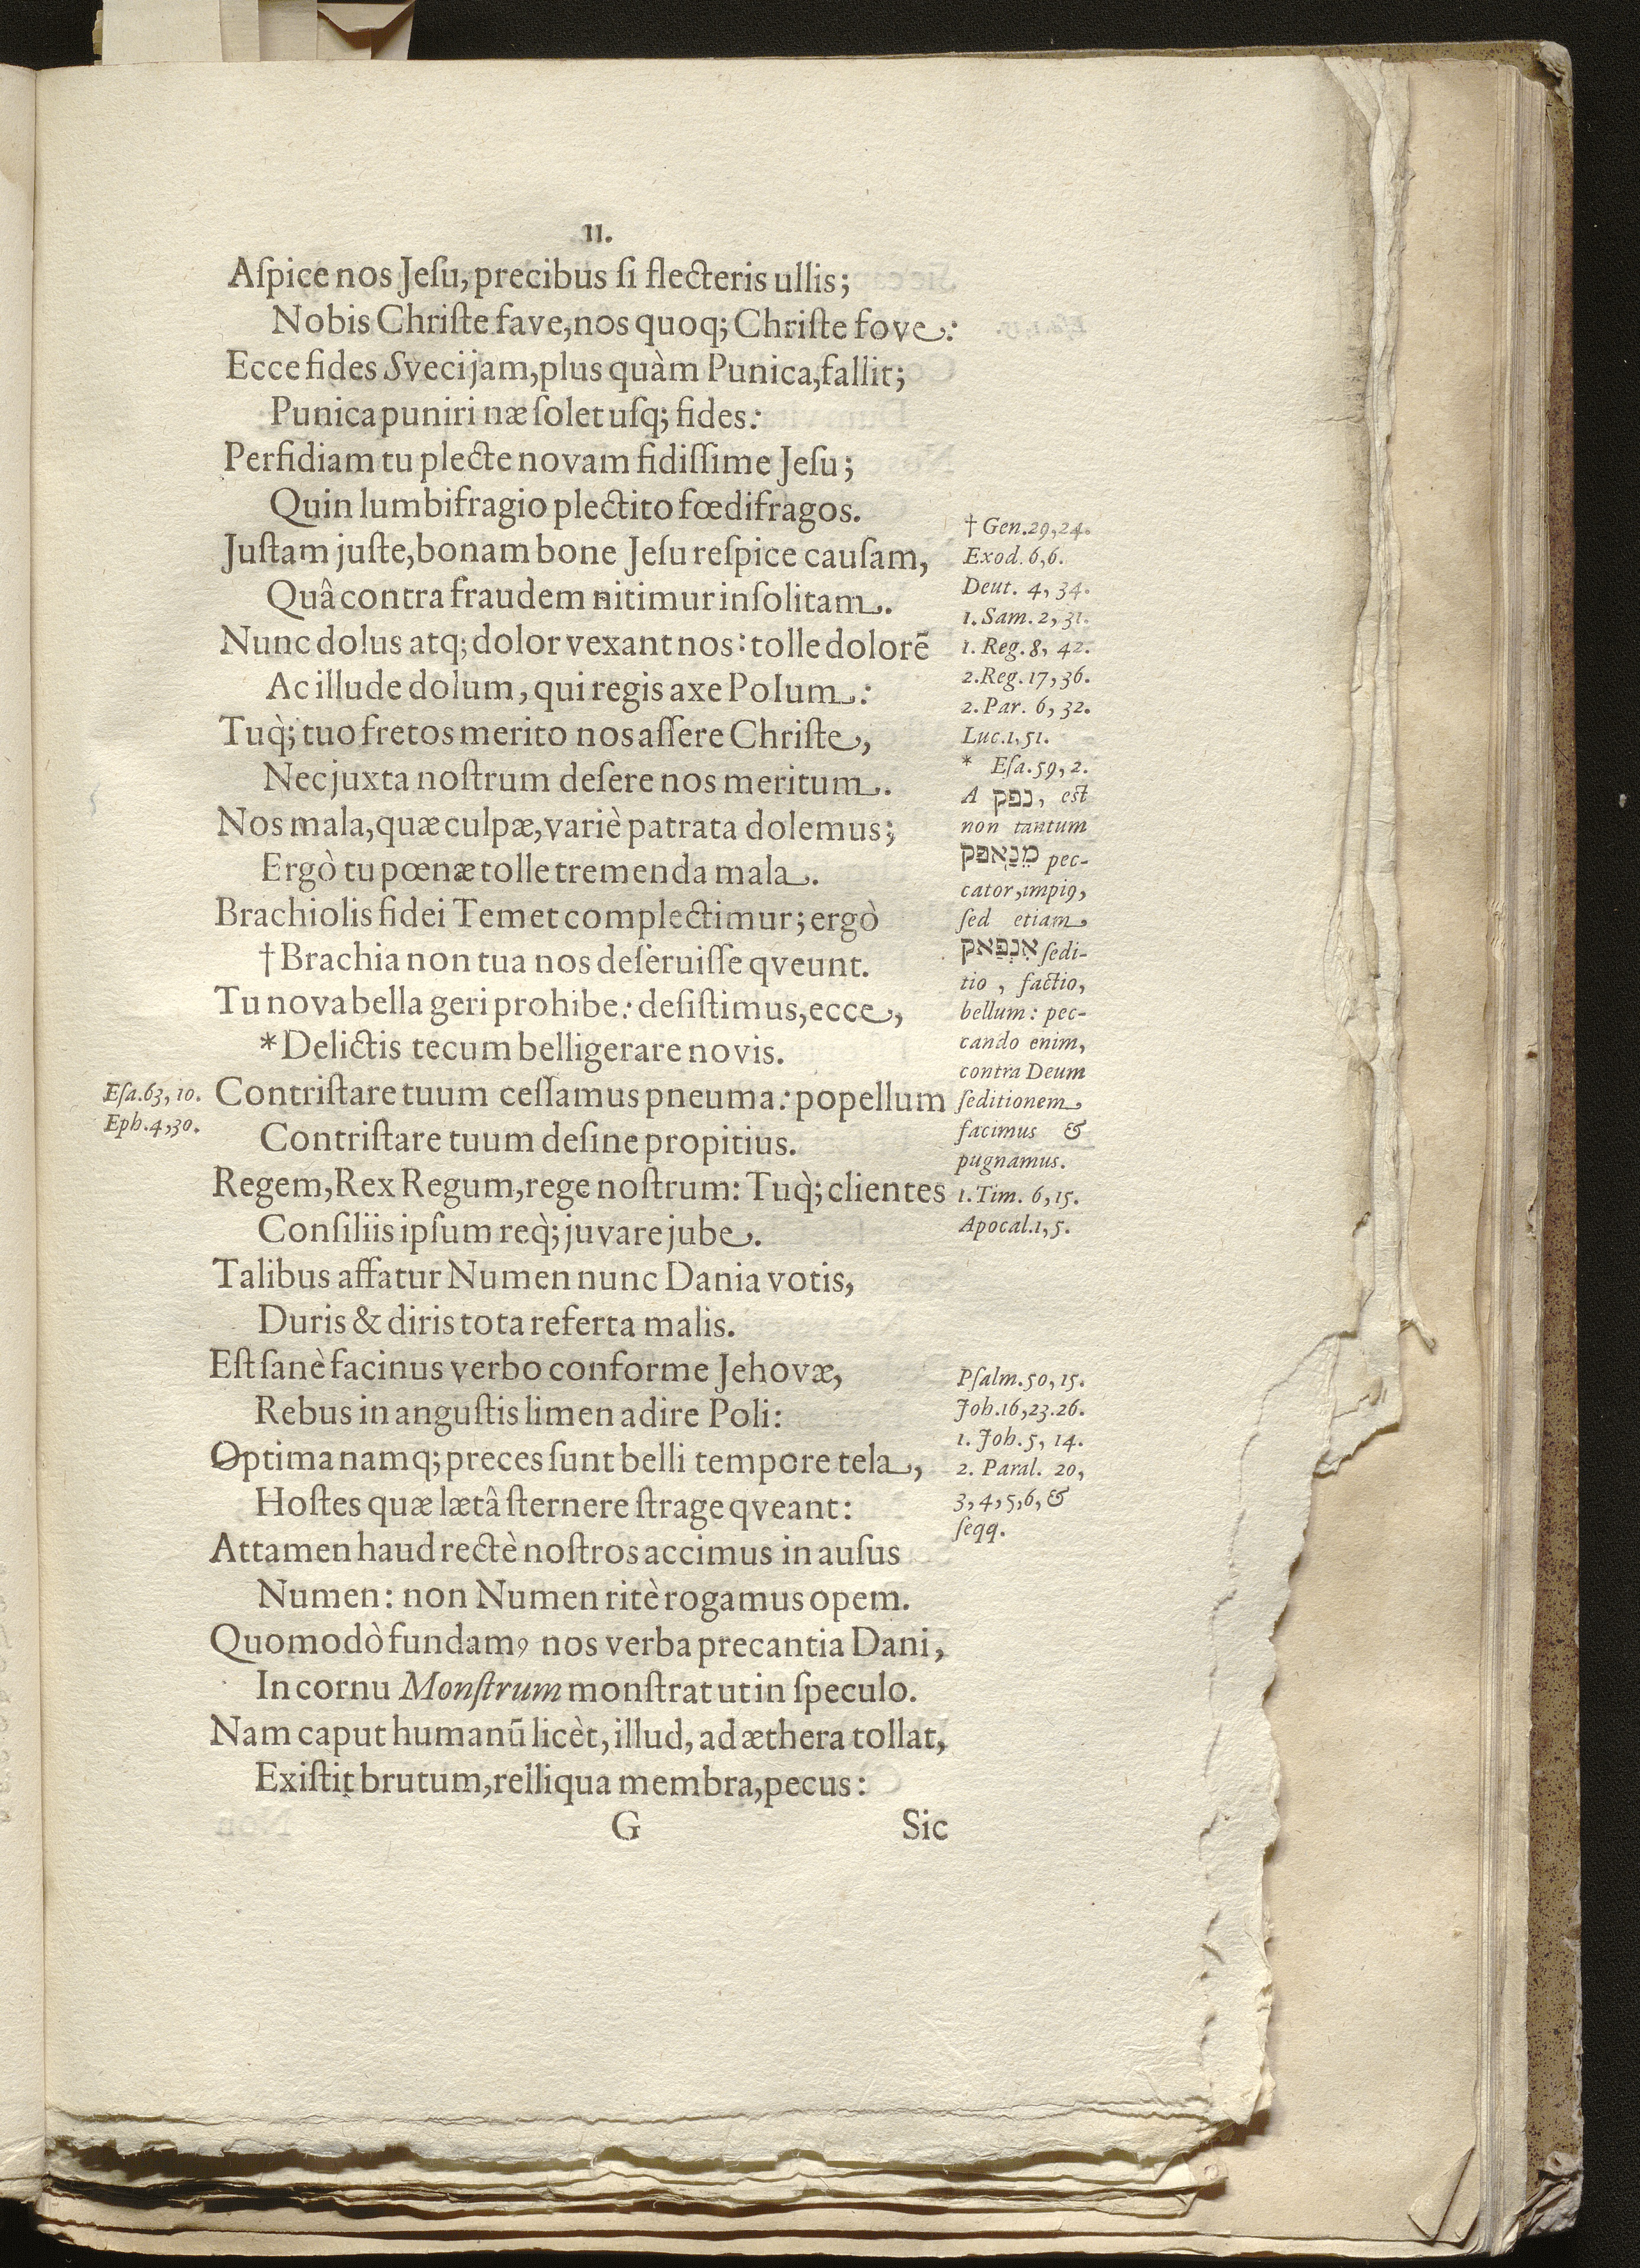 II.
Aſpice nos Jeſu, precibus ſi flecteris ullis;
Nobis Chriſte fave, nos quoq; Chriſte fove:
Ecce fides Sveci jam, plus quàm Punica, fallit;
Punica puniri næ ſolet uſq; fides:
Perfidiam tu plecte novam fidiſſime Jeſu;
Quin lumbifragio plectito fœdifragos.
Juſtam juſte, bonam bone Jeſu reſpice cauſam,
Quâ contra fraudem nitimur inſolitam.
Nunc dolus atq; dolor vexant nos: tolle dolorē
Ac illude dolum, qui regis axe Polum:
Tuq̀; tuo fretos merito nos aſſere Chriſte,
Nec juxta noſtrum deſere nos meritum.
Nos mala, quæ culpæ, variè patrata dolemus;
Ergò tu pœnæ tolle tremenda mala.
Brachiolis fidei Temet complectimur; ergò
†Brachia non tua nos deſeruiſſe qveunt.
Tu nova bella geri prohibe: deſiſtimus, ecce,
*Delictis tecum belligerare novis.
Contriſtare tuum ceſſamus pneuma: popellum
Contriſtare tuum deſine propitius.
Regem, Rex Regum, rege noſtrum: Tuq̀; clientes
Conſiliis ipſum req̀; juvare jube.
Talibus affatur Numen nunc Dania votis,
Duris & diris tota referta malis.
Eſt ſanè facinus verbo conforme Jehovæ,
Rebus in anguſtis limen adire Poli:
Optima namq; preces ſunt belli tempore tela,
Hoſtes quæ lætâ ſternere ſtrage qveant:
Attamen haud rectè noſtros accimus in auſus
Numen: non Numen ritè rogamus opem.
Quomodò fundamꝰ nos verba precantia Dani,
In cornu Monſtrum monſtrat ut in ſpeculo.
Nam caput humanū licèt, illud, ad æthera tollat,
Exiſtit brutum, relliqua membra, pecus:
G
Sic
† Gen. 29, 24.
Exod. 6, 6.
Deut. 4, 34.
1. Sam. 2, 31.
1. Reg. 8, 42.
2. Reg. 17, 36.
2. Par. 6, 32.
Luc. 1, 51.
* Eſa. 59, 2.
A נפק, eſt
non tantum
pec-
cator, impiꝰ,
ſed etiam
ſedi-
tio, factio,
bellum: pec-
cando enim,
contra Deum
ſeditionem
facimus &
pugnamus.
1. Tim. 6, 15.
Apocal. 1, 5.
Pſalm. 50, 15.
Joh. 16, 23. 26.
1. Joh. 5, 14.
2. Paral. 20,
3, 4, 5, 6, &
ſeqq.
Eſa. 63, 10.
Eph. 4, 30.